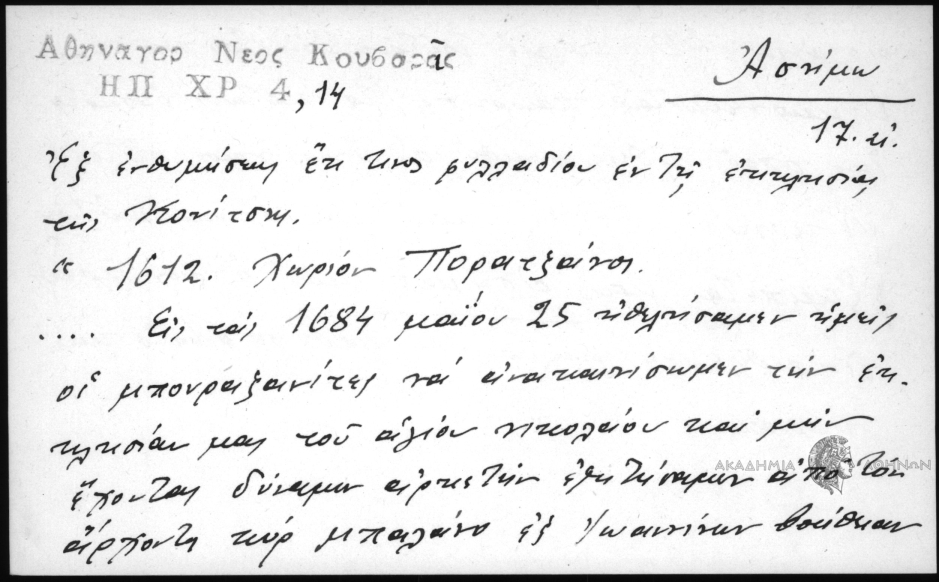 Αθηναγορ Νεος Κουβαρᾶς
ΗΠ ΧΡ 4, 14
Ἀσήμι
17. αἰ.
Ἐξ ἐνθυμήσεως ἔκ τινος φυλλαδίου ἐν τῇ ἐκκλησίᾳ
τῆς Κονίτσης.
" 1612. Χωρίον Πορατζάνοι.
.... Εἰς τάς 1684 μαΐου 25 ἠθελήσαμεν ἡμεῖς
οἱ μπουραζανίτες νά ἀνακαινίσωμεν τήν ἐκ-
κλησίαν μας τοῦ ἁγίου νικολάου καί μήν
ἔχοντας δύναμιν ἀρκετήν ἐζητήσαμεν ἀπό τόν
ἄρχοντα κύρ μπαλάνο ἐξ Ἰωαννίνων βοήθειαν
ΑΚΑΔΗΜΙΑ ΑΘΗΝΩΝ